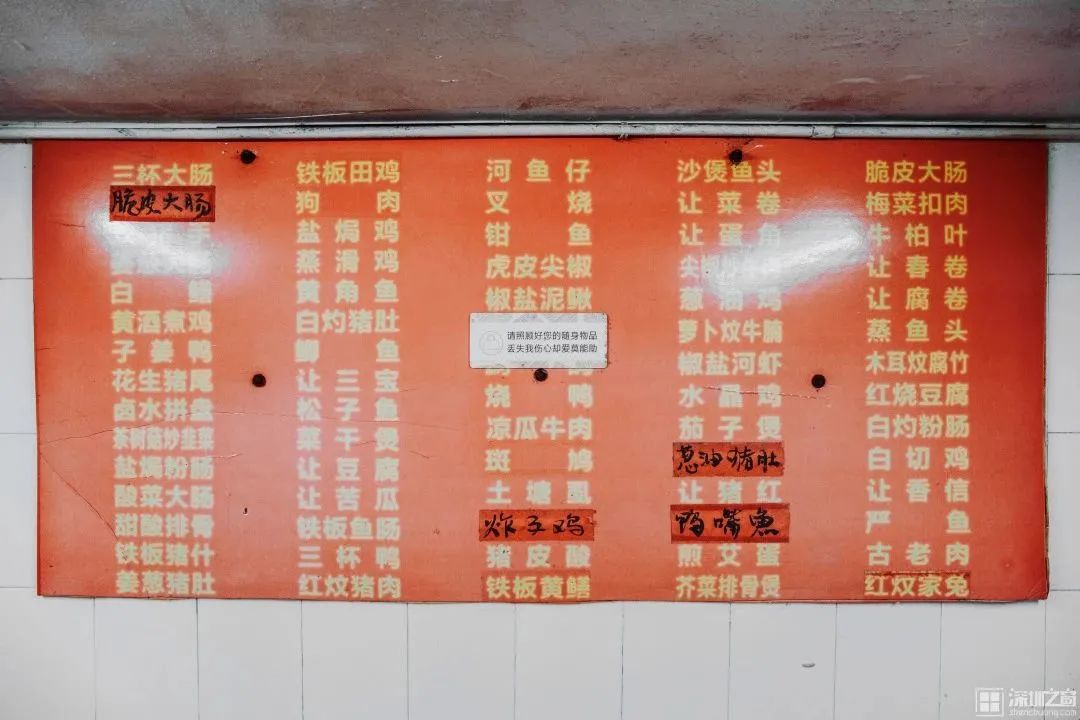 三杯大肠
脆皮大肠
白鳝
黄酒煮鸡
子姜鸭
花生猪尾
卤水拼盘
茶树菇炒韭菜
盐焗粉肠
酸菜大肠
甜酸排骨
铁板猪什
姜葱猪肚
铁板田鸡
狗肉
盐焗鸡
蒸滑鸡
黄角鱼
白灼猪肚
鲫鱼
让三宝
松子鱼
菜干煲
让豆腐
让苦瓜
铁板鱼肠
三杯鸭
红炆猪肉
河鱼仔
叉烧
钳鱼
虎皮尖椒
椒盐泥鳅
请照顾好您的随身物品
丢失我伤心却爱莫能助
烧鸭
凉瓜牛肉
斑鸠
土塘虱
炸子鸡
猪皮酸
铁板黄鳝
沙煲鱼头
让菜卷
让蛋角
葱油鸡
萝卜炆牛腩
椒盐河虾
水晶鸡
茄子煲
葱油猪肚
让猪红
鸭嘴魚
煎艾蛋
芥菜排骨煲
脆皮大肠
梅菜扣肉
牛柏叶
让春卷
让腐卷
蒸鱼头
木耳炆腐竹
红烧豆腐
白灼粉肠
白切鸡
让香信
严鱼
古老肉
红炆家兔
深圳之窗
shenchuang.com